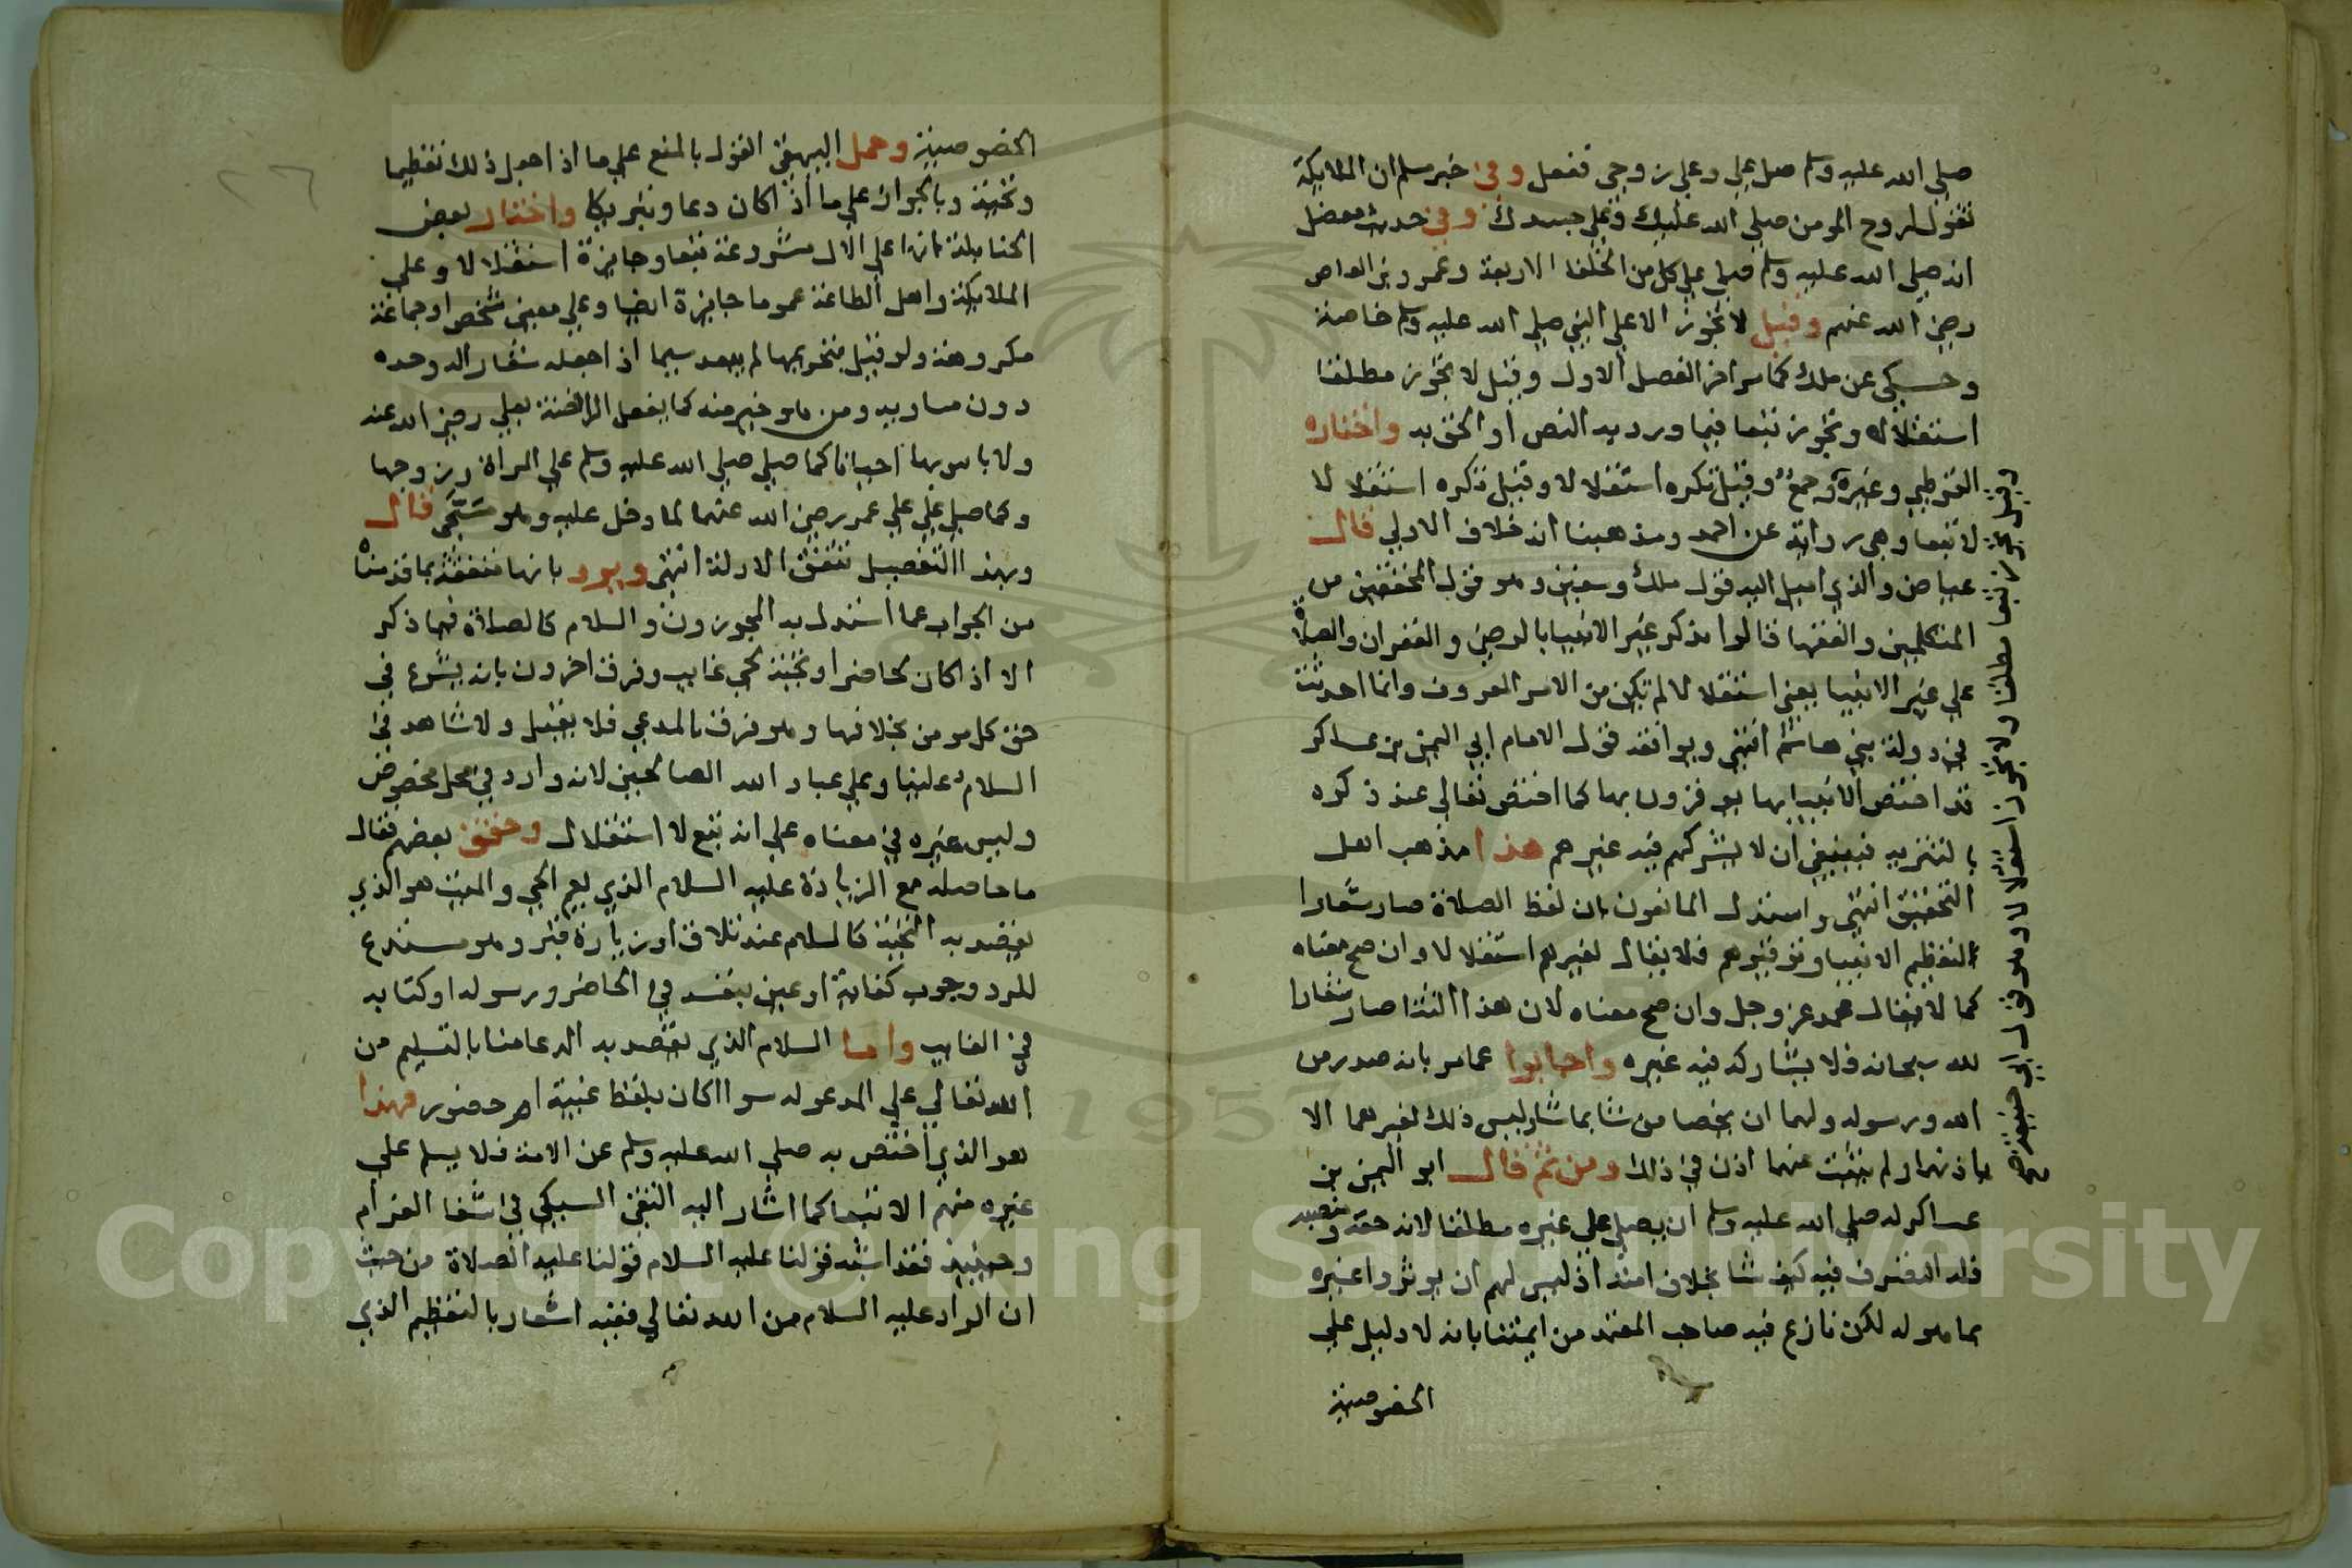 صلي الله عليه وسلم صل علي وعلي زوجي ففعل وفي خبر مسلم ان الملايكة
تقول لروح المومن صلي الله عليك وعلي جسدك وفي حديث معضل
انه صلي الله عليه وسلم صلي علي كل من الخلفا الاربعة وعمرو بن العاص
رضي الله عنهم وقيل لا تجوز الا علي النبي صلي الله عليه وسلم خاصة
وحكي عن ملك كما مر اخر الفصل الاول وقيل لا تجوز مطلقا
استقلالا وتجوز تبعا فيما ورد به النص او الحق به واختاره
القرطبي وغيره وقيل تكره استقلالا لا وقيل تكره استقلالا
لا تبعا وهي رواية عن احمد ومذهبنا انه خلاف الاولي قال
عياض والذي اميل اليه قول ملك وسفين وهو قول المحققين من
المتكلمين والفقها قالوا يذكر غير الانبيا بالرضي والغفران والصلاة
علي غير الانبيا يعني استقلالا لم تكن من الامر المعروف وانما احدثت
في دولة بني هاشم انتهي ويوافقه قول الامام ابي اليمن بن عساكر
قد اختص الانبيا بها يوقرون بها كما اختص تعالي عند ذكره
بالتنزيه فينبغي ان لا يشركهم فيه غيرهم هذا مذهب اهل
التحقيق انتهي واستدل المانعون بان لفظ الصلاة صار شعارا
لتعظيم الانبيا وتوقيرهم فلا يقال لغيرهم استقلالا وان صح معناه
كما لا يقال محمد عز وجل وان صح معناه لان هذا الثنا صار شعارا
لله سبحانه فلا يشاركه فيه غيره واجابوا عما مر بانه صدر من
الله ورسوله ولهما ان يخصا من شا بما شا وليس ذلك لغيرهما الا
باذنهما ولم يثبت عنهما اذن في ذلك ومن ثم قال ابو اليمن بن
عساكر له صلي الله عليه وسلم ان يصلي علي غيره مطلقا لانه حقه ومنصبه
فله التصرف فيه كيف شا بخلاف امته اذ ليس لهم ان يوثروا غيره
بما هو له لكن نازع فيه صاحب المعتمد من ايمتنا بانه لا دليل علي
الخصوصية
وقيل تجوز تبعا مطلقا ولا تجوز استقلالا وهو قول ابي حنيفة صح
٢٦
الخصوصية وحمل البيهقي القول بالمنع علي ما اذا جعل ذلك تعظيما
وتحية وبالجواز علي ما اذا كان دعا وتبريكا واختار بعض
الحنابلة انها علي الال مشروعة تبعا وجايزة استقلالا وعلي
الملايكة واهل الطاعة عموما جايزة ايضا وعلي معين شخص او جماعة
مكروهة ولو قيل بتحريمها لم يبعد سيما اذا جعله شعارا له وحده
دون مساويه ومن هو خير منه كما يفعل الرافضة بعلي رضي الله عنه
ولا باس بها احيانا كما صلي صلي الله عليه وسلم علي المراة وزوجها
وكما صلي علي علي عمر رضي الله عنهما لما دخل عليه وهو مسجي قال
وبهذا التفصيل تتفق الادلة انتهي ويرد بانها متفقة بما قدمناه
من الجواب عما استدل به المجوزون والسلام كالصلاة فيما ذكر
الا اذا كان لحاضر او تحية لحي غايب وفرق اخرون بانه يشرع في
حق كل مومن بخلافها وهو فرق بالمدعي فلا يقبل ولا شاهد في
السلام علينا وعلي عباد الله الصالحين لانه وارد في محل مخصوص
وليس غيره في معناه علي انه تبع لا استقلال وحقق بعضهم فقال
ما حاصله مع الزيادة عليه السلام الذي يعم الحي والميت هو الذي
يقصد به التحية كالسلام عند تلاق او زيارة قبر وهو مستدع
للرد وجوب كفاية او عين بنفسه في الحاضر ورسوله او كتابه
في الغايب واما السلام الذي يقصد به الدعا منا بالتسليم من
الله تعالي علي المدعو له سوا اكان بلفظ غيبة ام حضور فهذا
هو الذي اختص به صلي الله عليه وسلم عن الامة فلا يسلم علي
غيره منهم الا تبعا كما اشار اليه التقي السبكي في شفا الغرام
وحينئذ فقد اشبه قولنا عليه السلام قولنا عليه الصلاة من حيث
ان المراد عليه السلام من الله تعالي ففيه اشعار بالتعظيم الذي
Copyright © King Saud University
1957